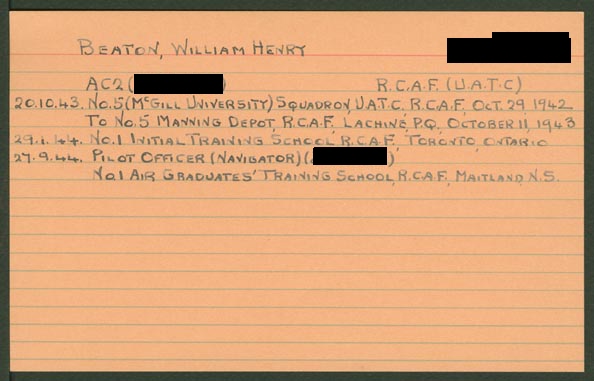 BEATON, WILLIAM HENRY
AC2 ( ) R.C.A.F. (U.A.T.C)
20.10.43. No.5 (McGILL UNIVERSITY) SQUADRON, U.A.T.C., R.C.A.F., OCT. 29, 1942
TO No.5 MANNING DEPOT, R.C.A.F., LACHINE, P.Q., OCTOBER 11, 1943
29.1.44. No.1 INITIAL TRAINING SCHOOL, R.C.A.F., TORONTO, ONTARIO
27.9.44. PILOT OFFICER (NAVIGATOR) ( )
No.1 AIR GRADUATES' TRAINING SCHOOL, R.C.A.F., MAITLAND, N.S.